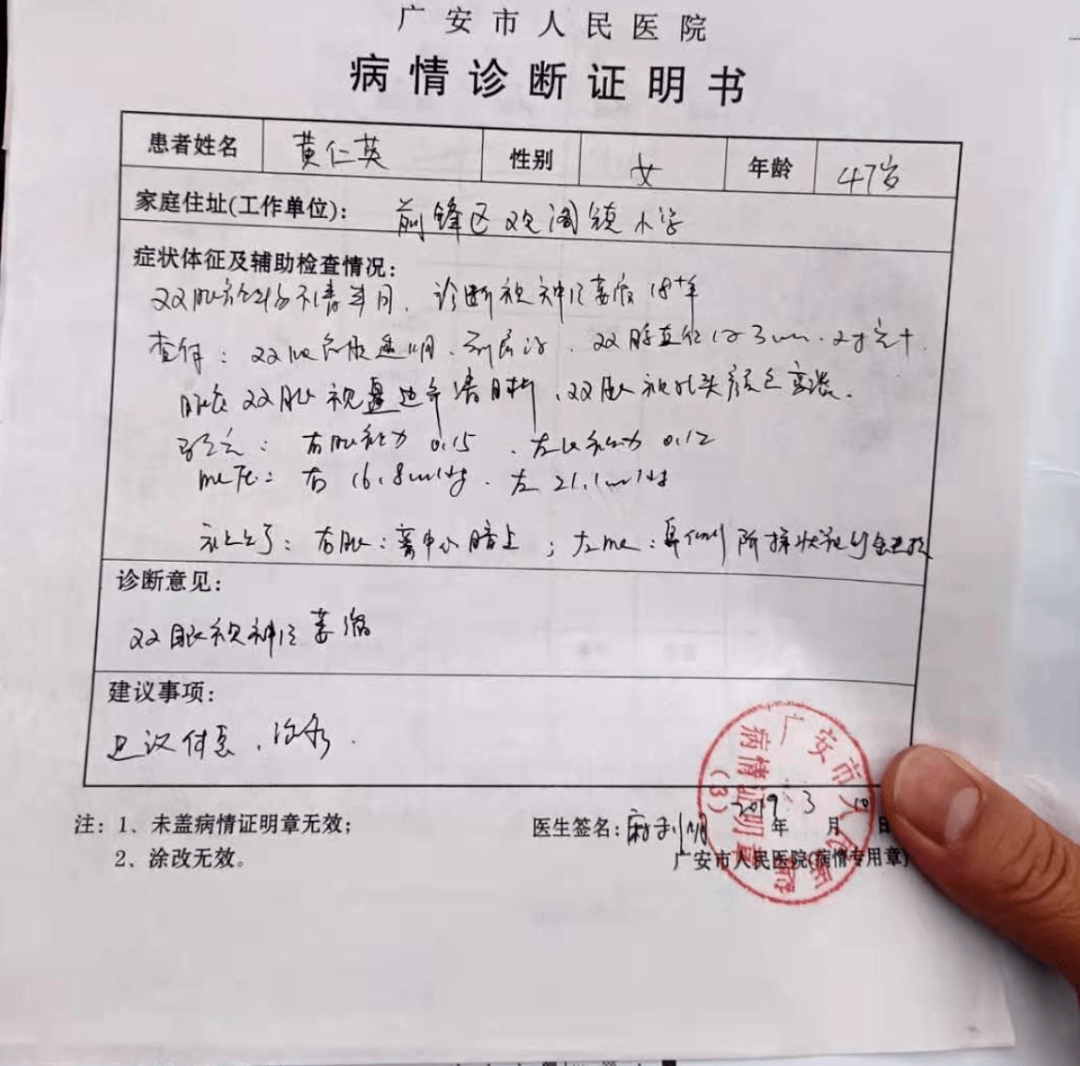 广安市人民医院
病情诊断证明书
患者姓名 黄仁英 性别 女 年龄 47岁
家庭住址(工作单位): 前锋区观阁镇小学
症状体征及辅助检查情况:
双眼视物不清半月、诊断视神经萎缩18+年
查体: 双眼 双瞳直径约3mm
双眼视盘边界清晰、双眼视乳头颜色变淡.
右眼视力 0.15 、左眼视力 0.12
眼压: 右 16.8mmHg . 左 21.1mmHg
视野: 右眼: 离中心暗点 ; 左眼: 鼻侧阶梯状视野
诊断意见:
双眼视神经萎缩
建议事项:
建议休息、治疗.
注: 1、未盖病情证明章无效;
医生签名: 2019年 3月 10日
2、涂改无效。
广安市人民医院(病情专用章)
广安市人民医院
病情证明章
(3)